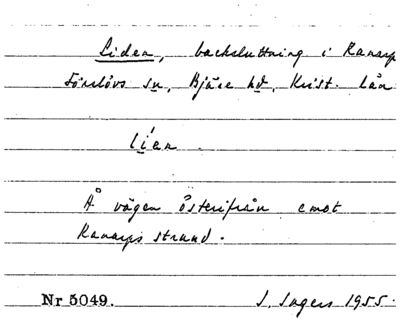 Liden, backsluttning i Ranarp
Förslövs sn, Bjäre hd, Krist. län
lían
Å vägen österifrån emot
Ranarps strand.
Nr 5049. S. Ingers 1955.